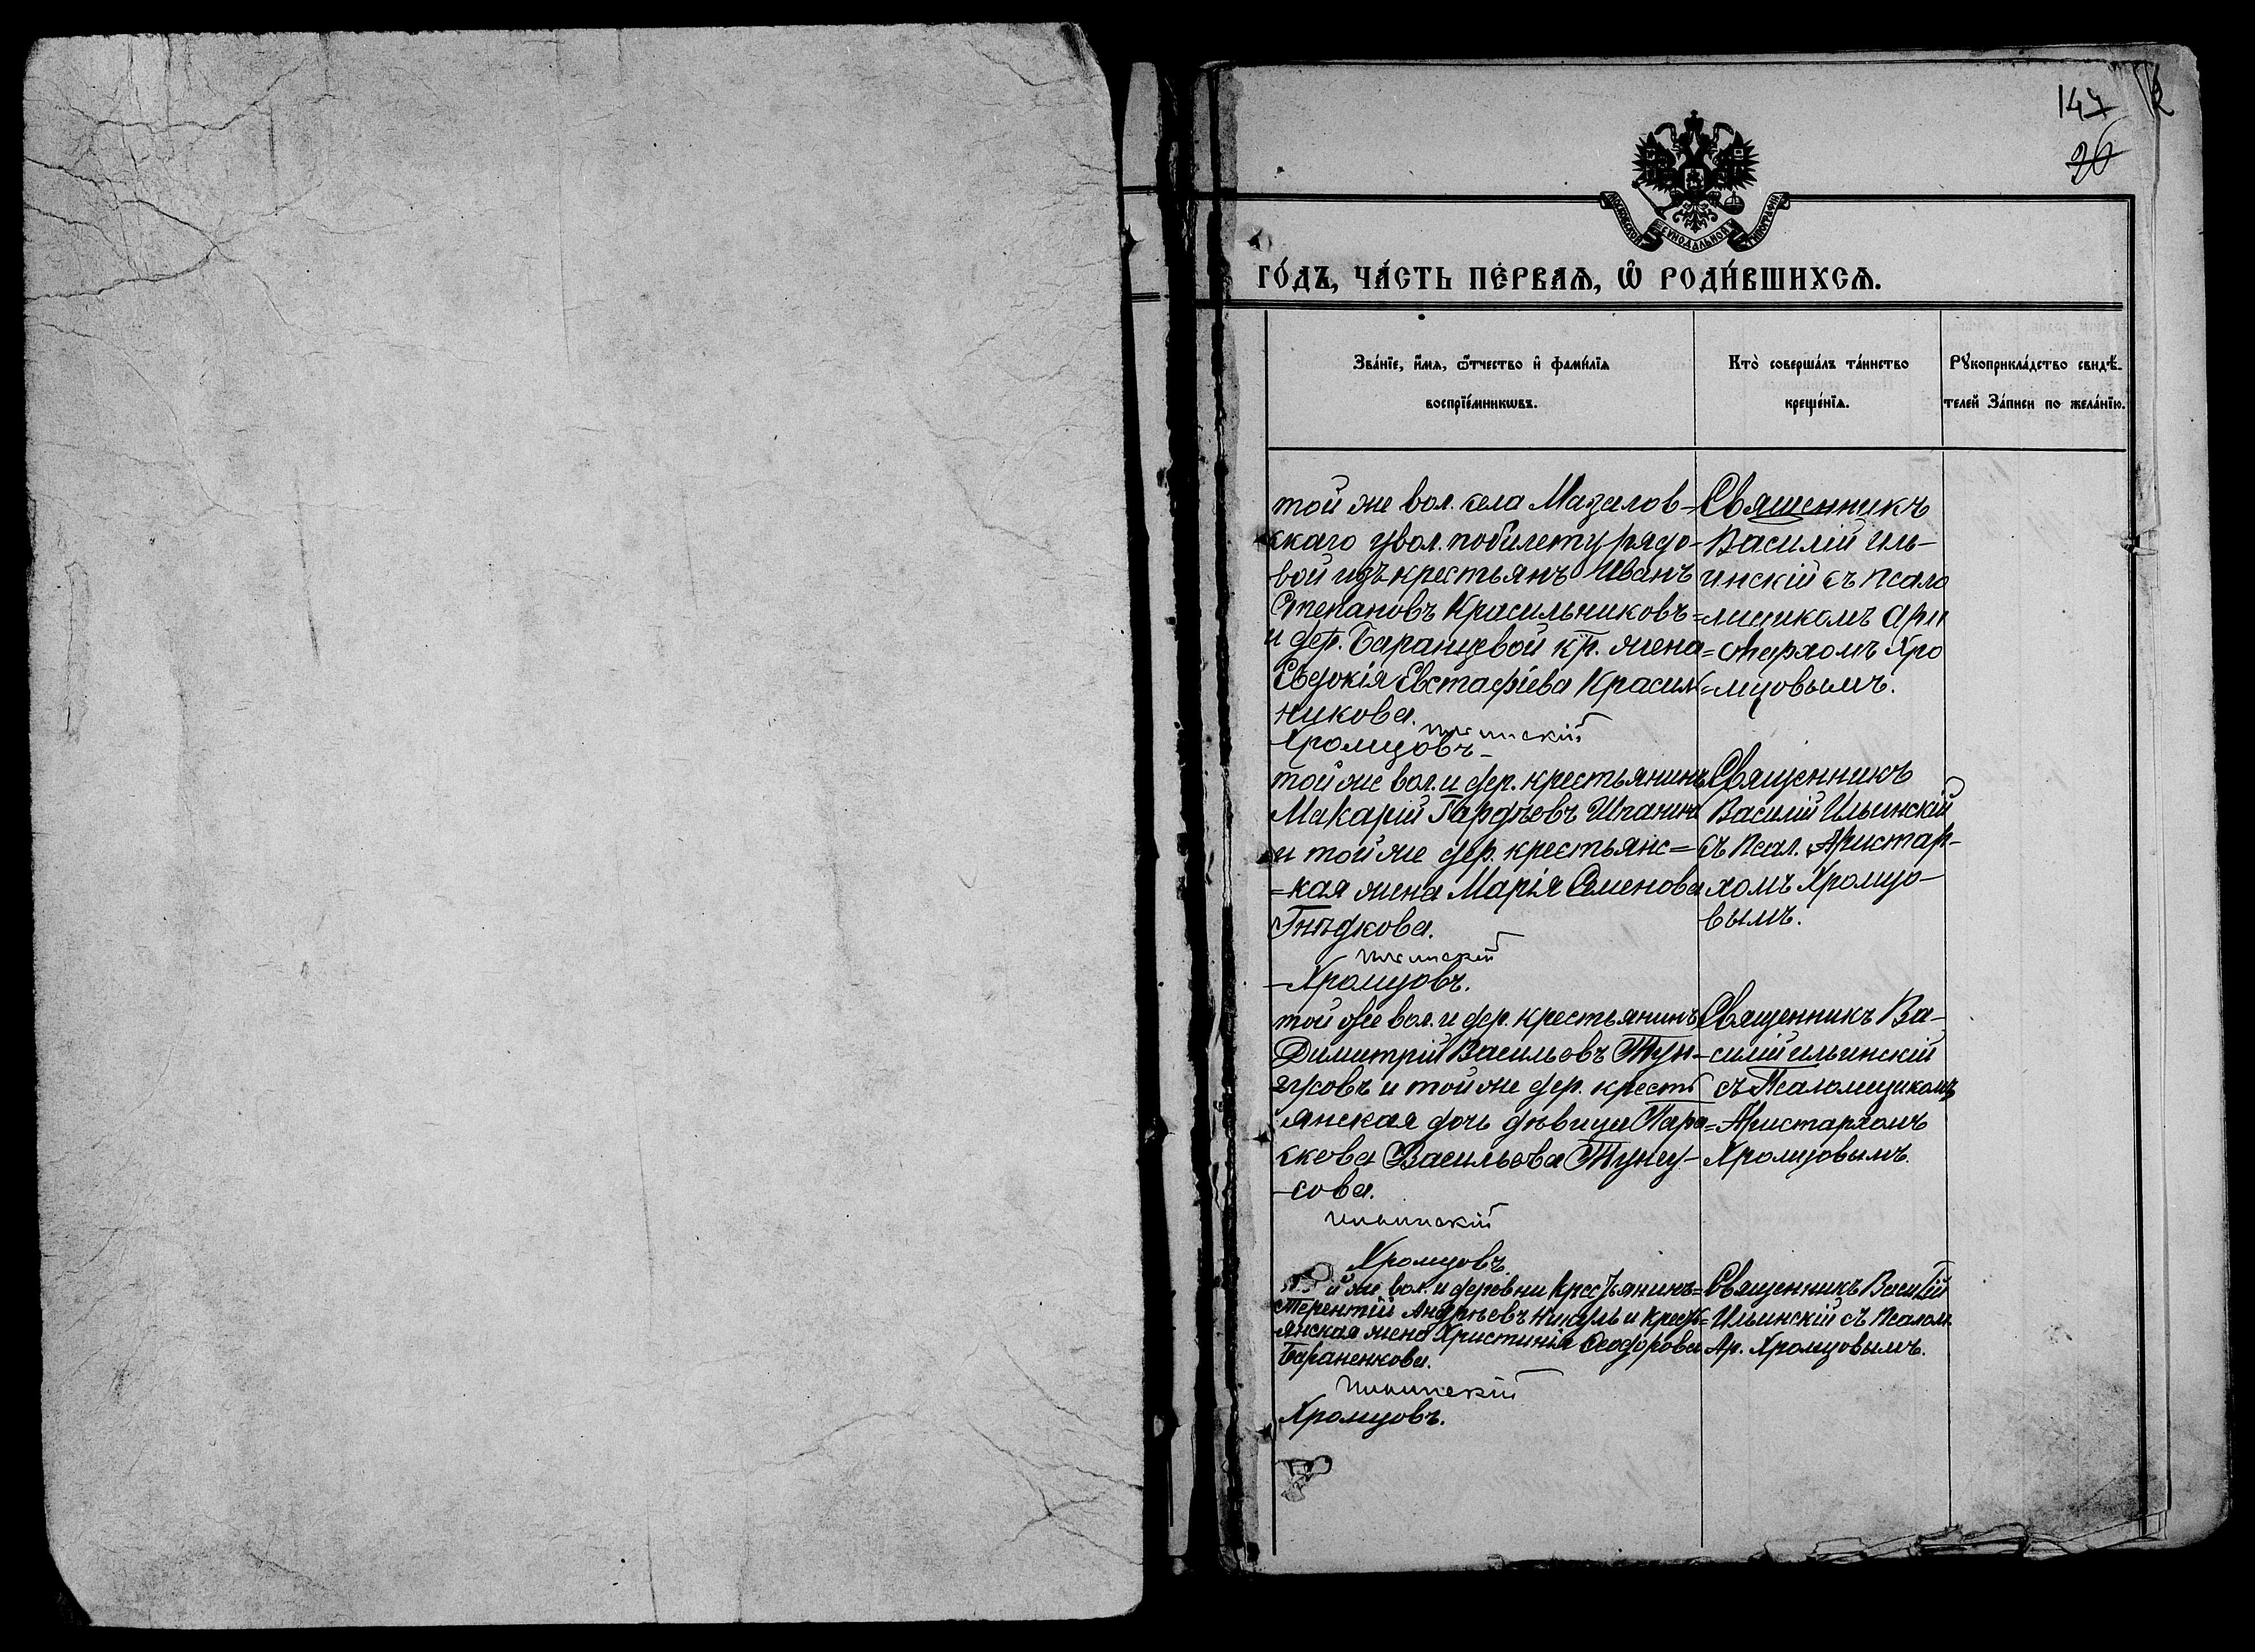 147
26
МОСКОВСКОЙ СѴНОДАЛЬНОЙ ТИПОГРАФІИ
ГО́ДЪ, ЧА́СТЬ ПЕ́РВАѦ, Ѡ҆ РОДИ́ВШИХСѦ.
Зва́нїе, и҆́мѧ, ѻ҆́тчество и҆ фами́лїѧ
воспрїе́мникѡвъ.
Кто̀ соверша́лъ та́инство
креще́нїѧ.
Рꙋкоприкла́дство свидѣ́-
телей За́писи по жела́нїю.
той же вол. села Мазалов-
скаго увол. по билету рядо-
вой изъ крестьянъ Иванъ
Степановъ Красильниковъ=
и дер. Баранцевой кр. жена=
Евдокія Евстафіева Красил
никова.
Ильинскій
Хромцовъ
Священникъ
Василій Иль-
инскій съ псало
мщикомъ Ари
стархомъ Хро
=мцовымъ.
той же вол. и дер. крестьянинъ
Макарій Гордѣевъ
и той же дер. крестьянс=
=кая жена Марія Семенова
Гнѣдкова.
Ильинскій
Хромцовъ.
Священникъ
Василій Ильинскій
съ псал. Аристар-
хомъ Хромцо-
вымъ.
той же вол. и дер. крестьянинъ
Димитрій Васильевъ Тун-
гусовъ и той же дер. кресть
янская дочь дѣвица Пара=
скева Васильева Тунгу-
-сова.
Ильинскій
Хромцовъ.
Священникъ Ва-
силій Ильинскій
съ Псаломщикомъ
Аристархомъ
Хромцовымъ.
той же вол. и деревни Крестьянинъ=
Терентій Андреевъ Никуль и Крест=
янская жена Христинія Ѳеодорова
Бараненкова.
Ильинскій
Хромцовъ.
Священникъ Василій
Ильинскій съ Псалом.
Ар. Хромцовымъ.